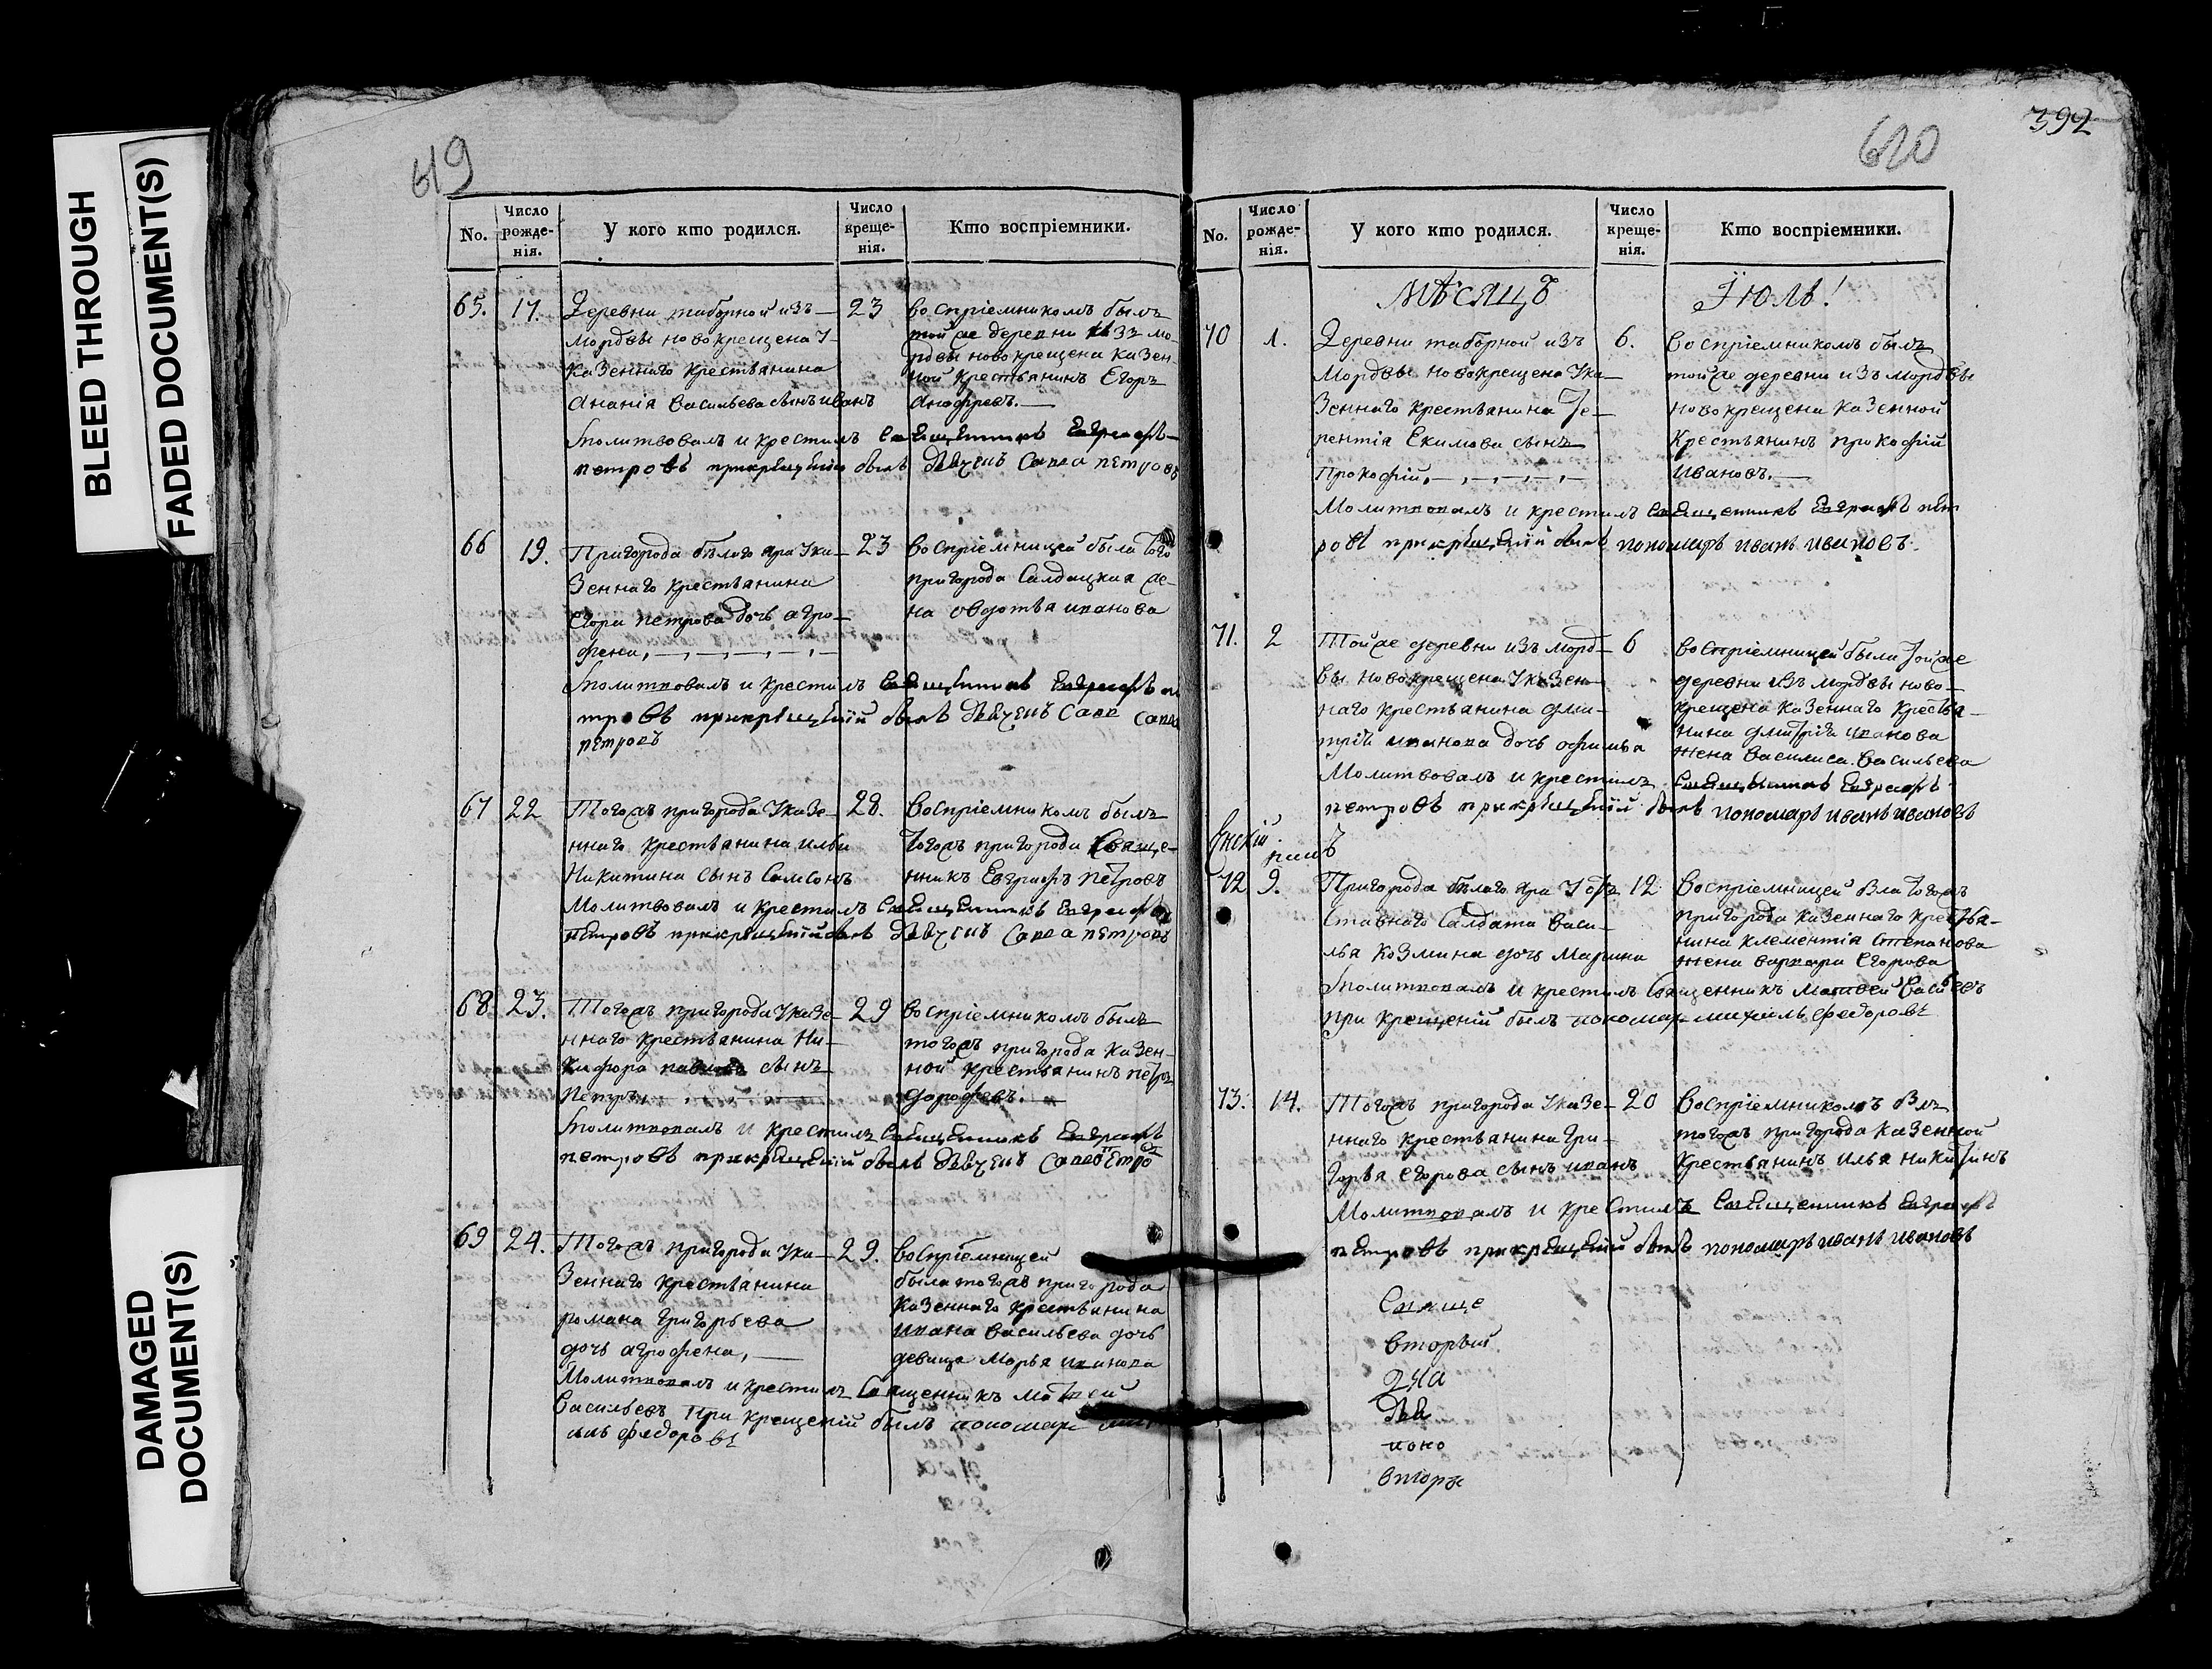 BLEED THROUGH
FADED DOCUMENT(S)
DAMAGED
DOCUMENT(S)
619
No.
Число рожденія.
У кого кто родился.
Число крещенія.
Кто воспріемники.
65. 17.
Деревни таборной изъ
мордвы новокрещена У
казеннаго крестьянина
Ананія Васильева сынъ иванъ
23
воспріемникомъ былъ
той же деревни изъ мо-
рдвы новокрещена казен
ной крестьянинъ Егоръ
Молитвовалъ и крестилъ священникъ Евграфъ
петровъ прикрещеніи былъ дьячекъ Савва петровъ
66 19.
Пригорода бѣлаго яра Ука
зеннаго крестьянина
Егора петрова дочь агро-
фена,
23
воспріемницей была того
пригорода Салдацкая же-
на овдотья иванова
Молитвовалъ и крестилъ священникъ Евграфъ пе
тровъ прикрещеніи былъ дьячекъ Савва
петровъ
67 22
Тогожъ пригорода Указе-
ннаго крестьянина ильи
Никитина сынъ Самсонъ
28.
Воспріемникомъ былъ
тогожъ пригорода Свяще-
нникъ Евграфъ Петровъ
Молитвовалъ и крестилъ священникъ Евграфъ
петровъ прикрещеніи былъ дьячекъ Савва петровъ
68 23.
Тогожъ пригорода Указе-
ннаго крестьянина Ни-
кифора сынъ
Петръ,
29
воспріемникомъ былъ
тогожъ пригорода казен-
ной крестьянинъ петръ
дорофевъ.
Молитвовалъ и крестилъ священникъ Евграфъ
петровъ прикрещеніи былъ дьячекъ
69 24.
Тогожъ пригорода Ука
зеннаго крестьянина
романа григорьева
дочь агрофена,
29.
воспріемницей
была тогожъ пригорода
казеннаго крестьянина
ивана васильева дочь
девица Марья иванова
Молитвовалъ и крестилъ Священникъ Матвей
Васильевъ при крещеніи былъ пономарь
федоровъ
392
620
No.
Число рожденія.
У кого кто родился.
Число крещенія.
Кто воспріемники.
Мѣсяцъ Іюль!
70 1.
Деревни таборной изъ
Мордвы новокрещена Ука
зеннаго крестьянина Те-
рентія Екимова сынъ
Прокофій,
6.
воспріемникомъ былъ
тойже деревни изъ мордвы
новокрещена казенной
крестьянинъ прокофій
ивановъ.
Молитвовалъ и крестилъ священникъ Евграфъ пет
ровъ прикрещеніи былъ пономарь иванъ ивановъ.
71. 2
Тойже деревни изъ морд-
вы новокрещена Указен
наго крестьянина дми-
трія иванова дочь
6
воспріемницей была тойже
деревни изъ мордвы ново-
крещена казеннаго крестья-
нина дмитрія иванова
жена василиса васильева
Молитвовалъ и крестилъ священникъ Евграфъ
петровъ прикрещеніи былъ пономарь иванъ ивановъ
72 9.
Пригорода бѣлаго яра У от
ставнаго Салдата васи-
лья козмина дочь Марина
12
воспріемницей бла тогожъ
пригорода казеннаго крестья-
нина клементія степанова
жена варвара Егорова
Молитвовалъ и крестилъ Священникъ Матвей
при крещеній былъ пономарь михаилъ федоровъ
73. 14.
Тогожъ пригорода Указе-
ннаго крестьянина Гри-
горья егорова сынъ иванъ
20
воспріемникомъ блъ
тогожъ пригорода казенной
крестьянинъ илья никитинъ
Молитвовалъ и крестилъ священникъ Евграфъ
петровъ прикрещеніи былъ пономарь иванъ ивановъ
Свяще
вторый
поно